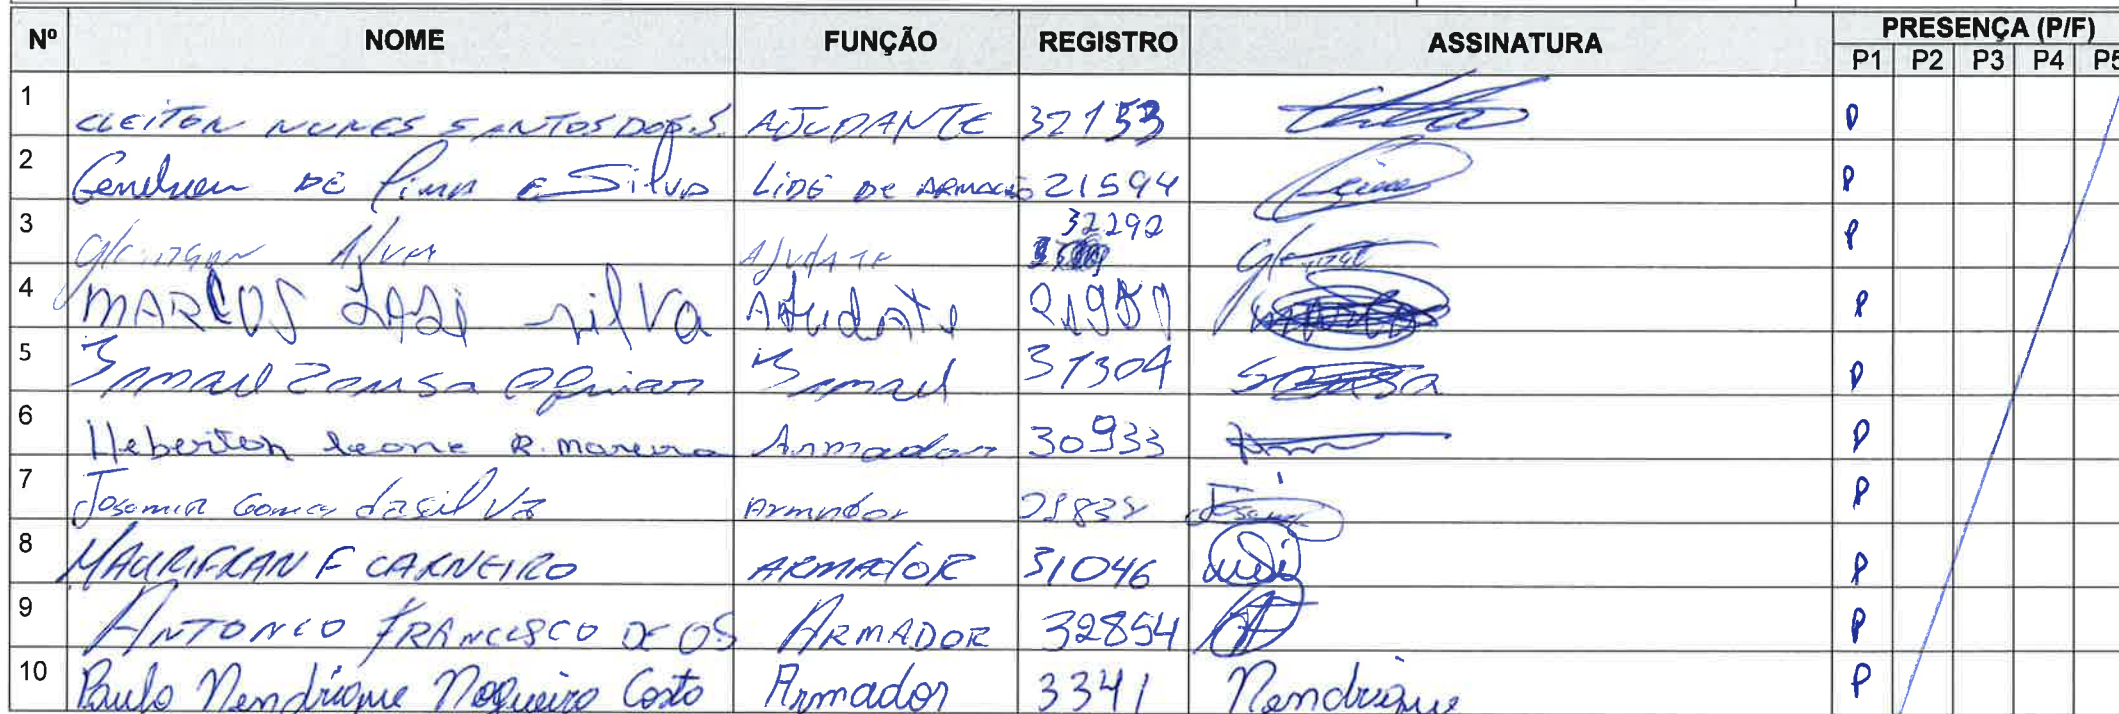 Nº NOME FUNÇÃO REGISTRO ASSINATURA PRESENÇA (P/F)
P1 P2 P3 P4 P5
1 CLEITON NUNES SANTOS DOS S. AJUDANTE 32153 P
2 DE Lima E Silva LIDE DE ARMAÇÃO 21594 P
3 Alves Ajudante 32292 P
4 MARCOS silva Ajudante P
5 31304 Sousa P
6 Heberton leone R. Moreira Armador 30933 P
7 Josemir Gomes da silva Armador P
8 MAURIFRAN F CARNEIRO ARMADOR 31046 P
9 ANTONIO FRANCISCO DE OS ARMADOR 32854 P
10 Paulo Hendrique Nogueira Costa Armador 3341 Hendrique P